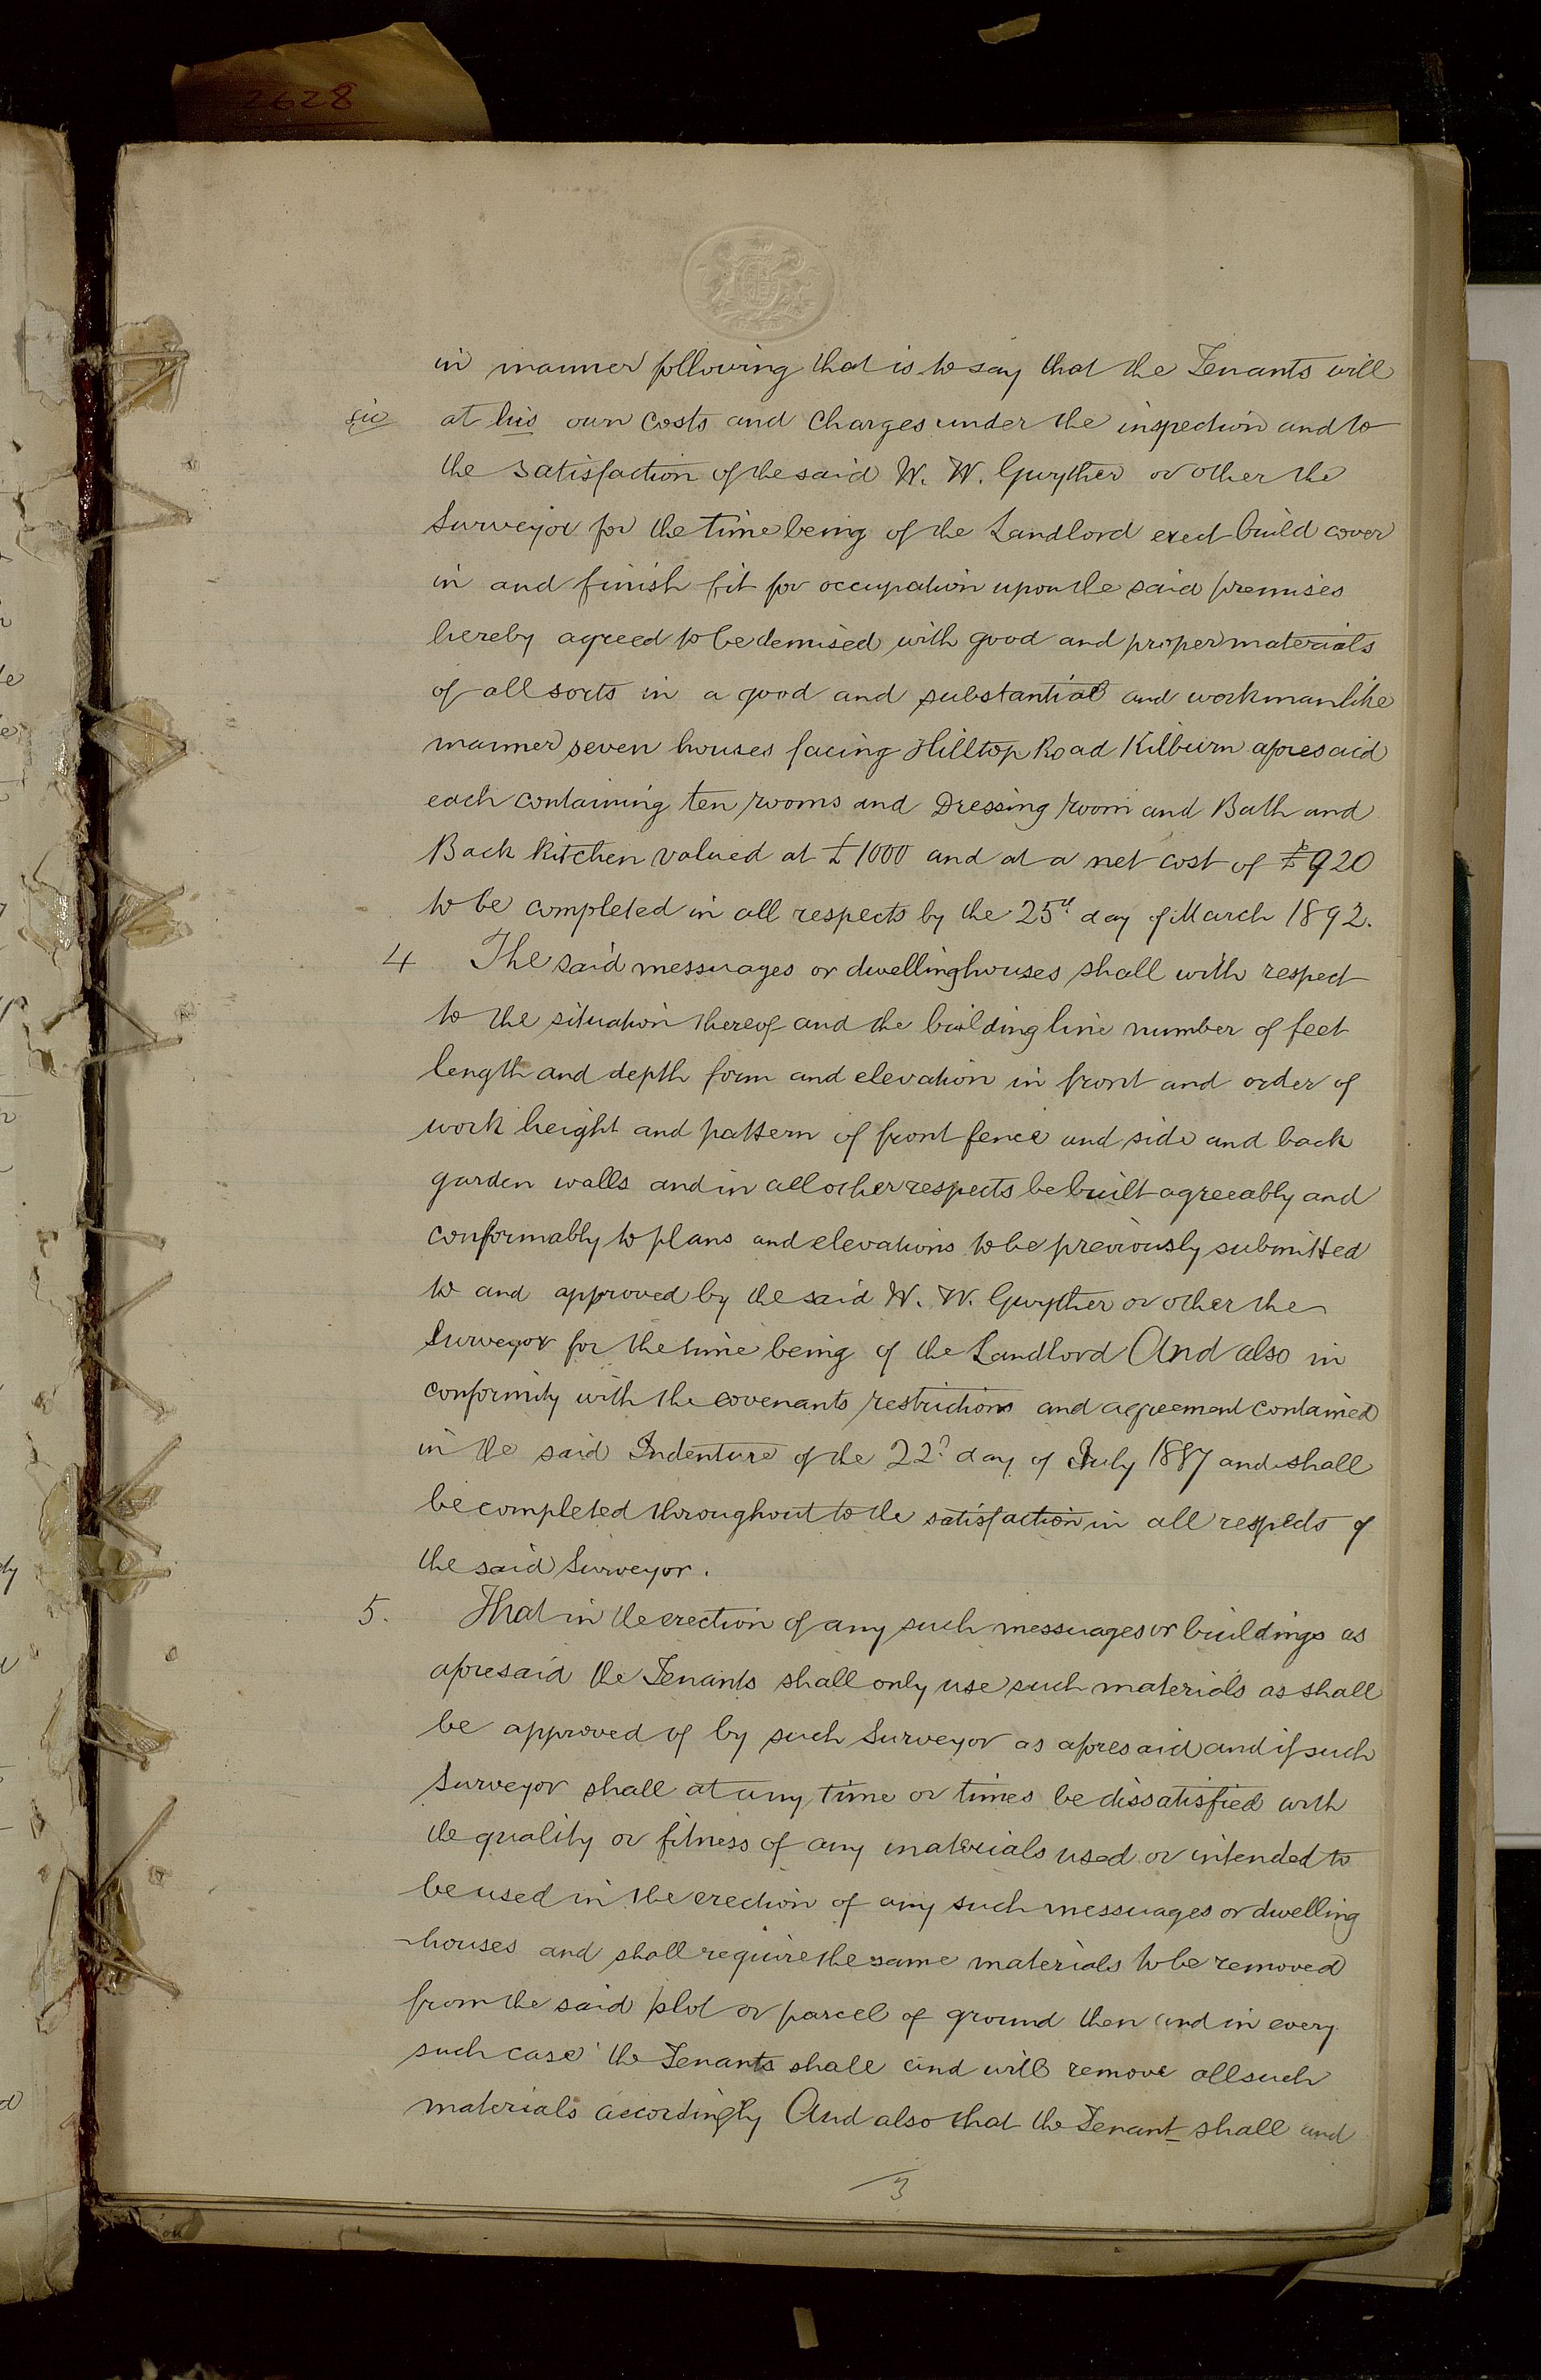 2628
in manner following that is to say that the Tenants will
sic at his own costs and charges under the inspection and to
the satisfaction of the said W. W. Gwyther or other the
Surveyor for the time being of the Landlord erect build cover
in and finish fit for occupation upon the said premises
hereby agreed to be demised with good and proper materials
of all sorts in a good and substantial and workmanlike
manner seven houses facing Hilltop Road Kilburn aforesaid
each containing ten rooms and Dressing room and Bath and
Back Kitchen valued at £1000 and at a net cost of £920
to be completed in all respects by the 25th day of March 1892.
4 The said messuages or dwellinghouses shall with respect
to the situation thereof and the building line number of feet
length and depth form and elevation in front and order of
work height and pattern of front fence and side and back
garden walls and in all other respects be built agreeably and
conformably to plans and elevations to be previously submitted
to and approved by the said W. W. Gwyther or other the
Surveyor for the time being of the Landlord And also in
conformity with the covenants restrictions and agreement contained
in the said Indenture of the 22d day of July 1887 and shall
be completed throughout to the satisfaction in all respects of
the said Surveyor.
5. That in the erection of any such messuages or buildings as
aforesaid the Tenants shall only use such materials as shall
be approved of by such Surveyor as aforesaid and if such
Surveyor shall at any time or times be dissatisfied with
the quality or fitness of any materials used or intended to
be used in the erection of any such messuages or dwelling
-houses and shall require the same materials to be removed
from the said plot or parcel of ground then and in every
such case the Tenants shall and will remove all such
materials accordingly And also that the Tenant shall and
3